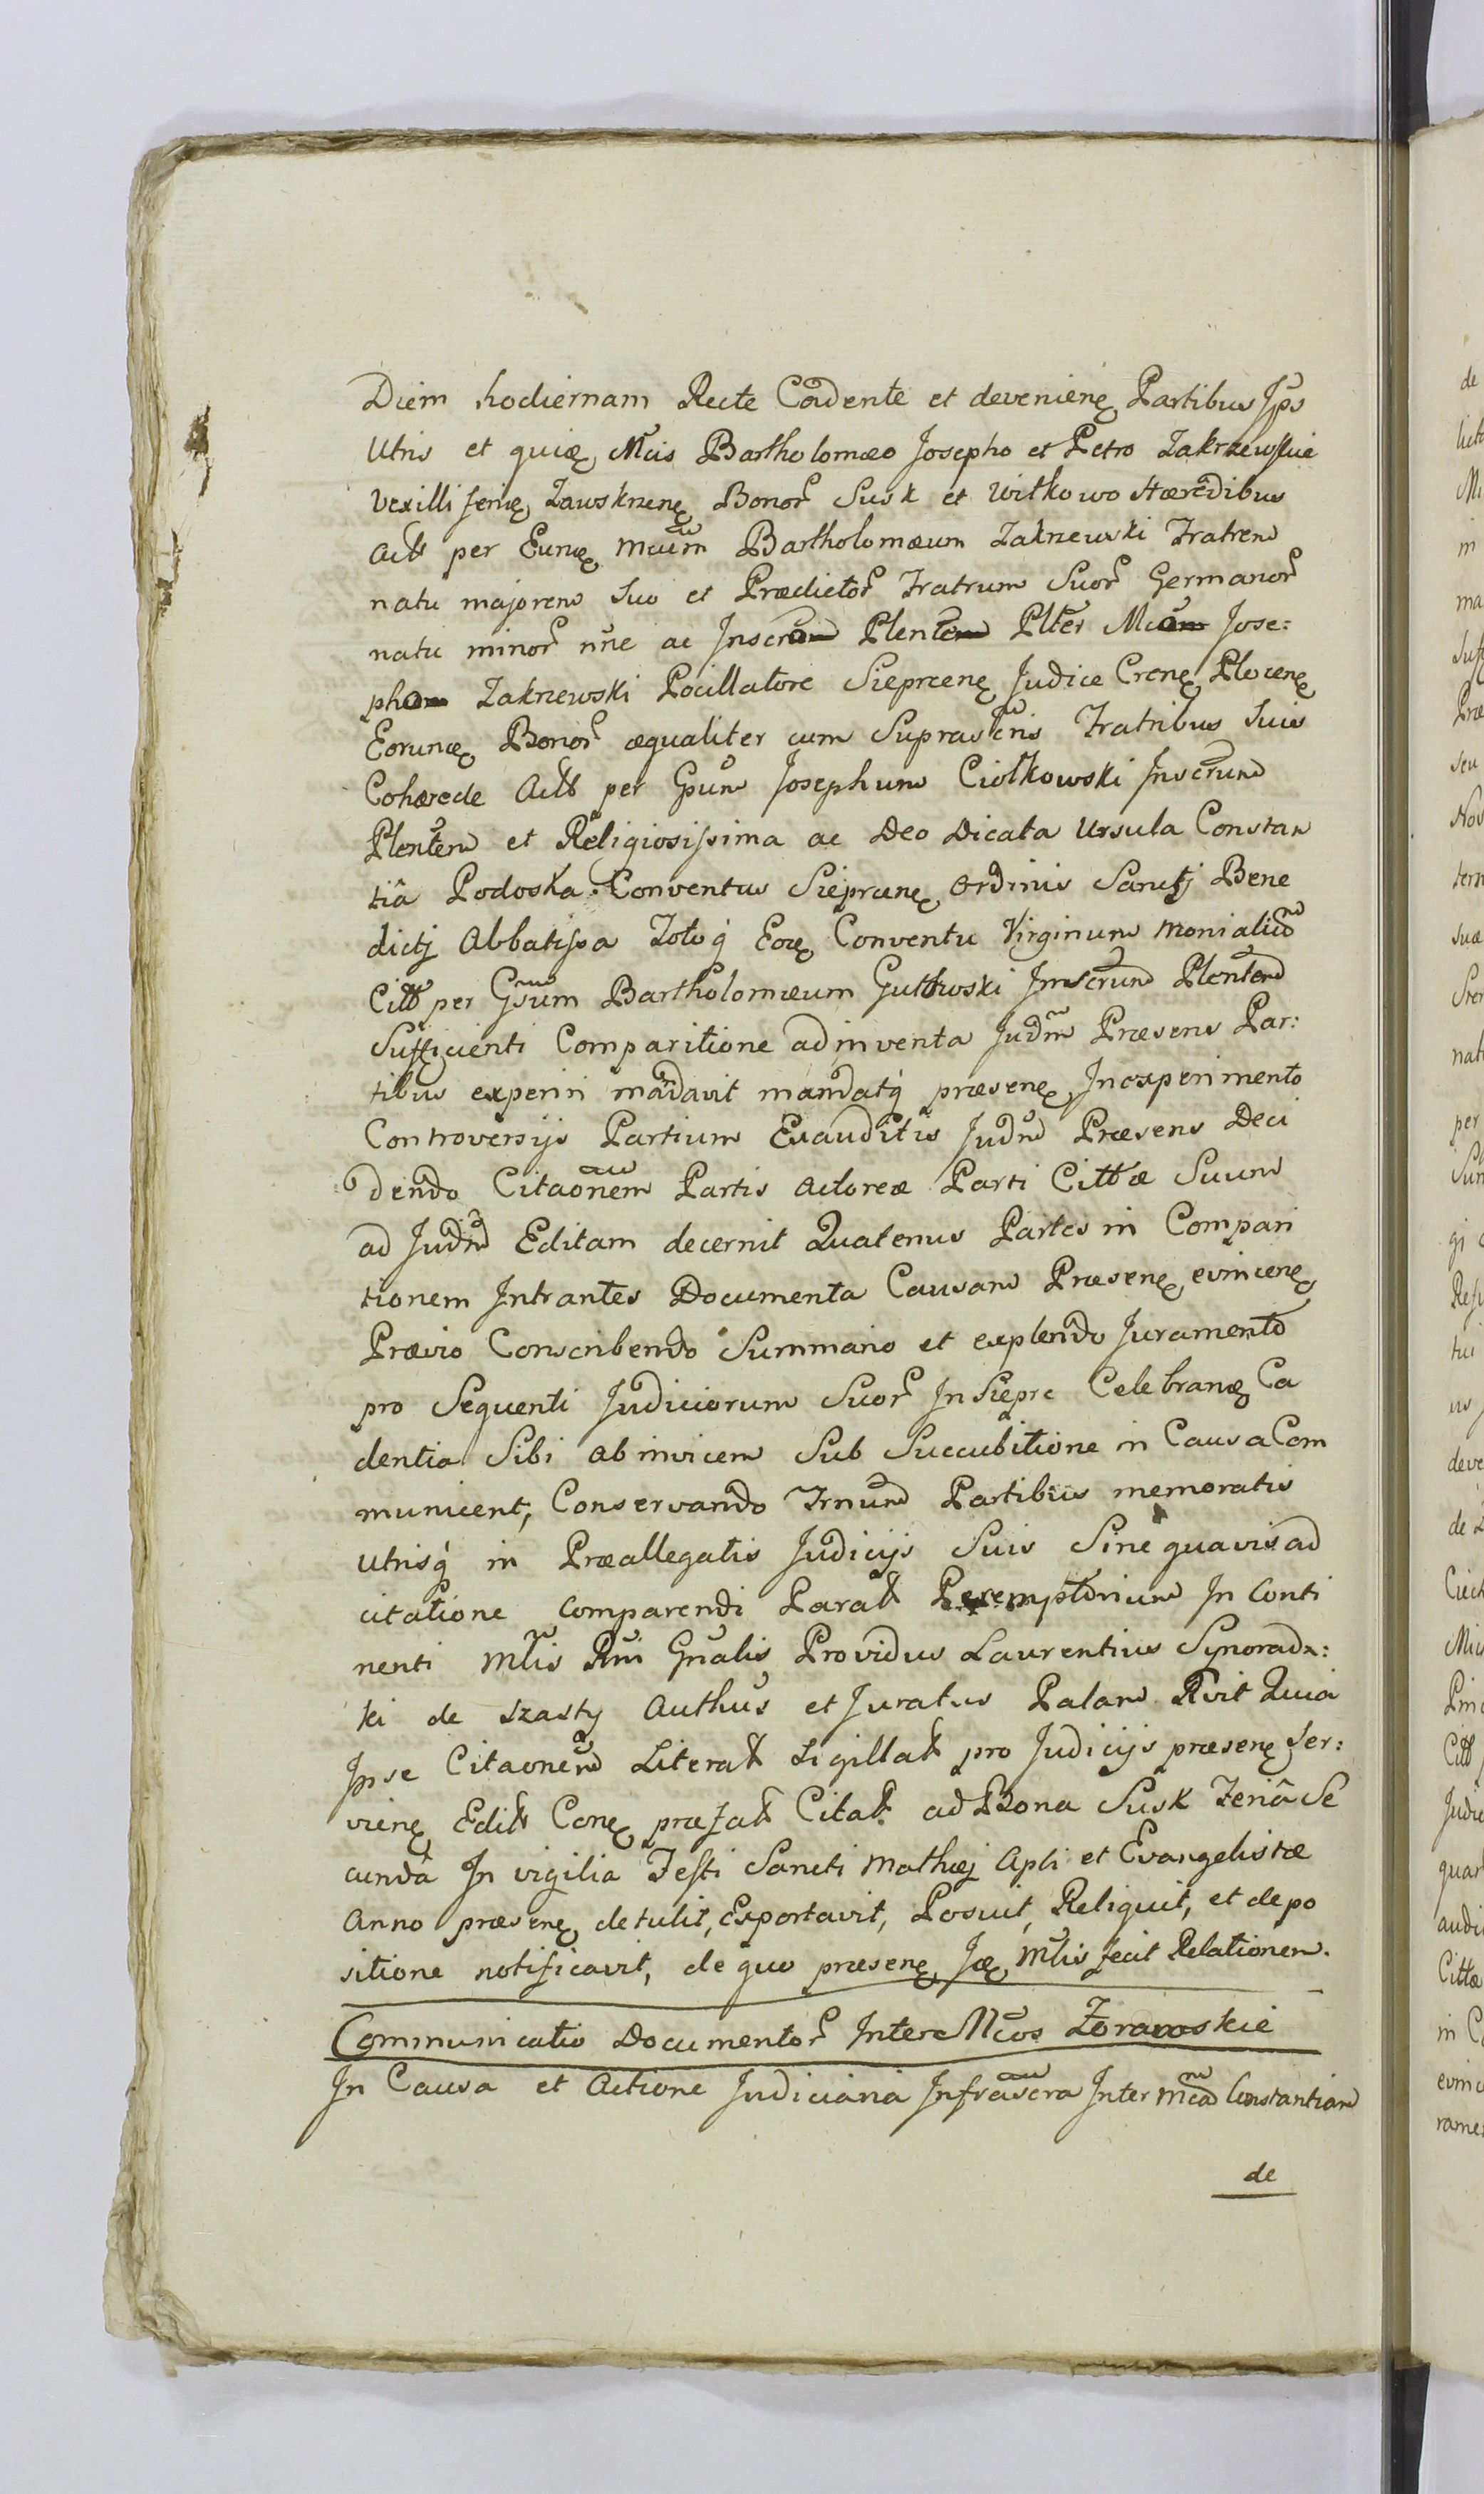 Diem hodiernam Recte Cadente et devenienę Partibus Jp̃s
Utris et quiæ Mcis Bartholomæo Josepho et Petro Zakrzewskie
Vexilliferię Zawskrzenę Bonoꝝ Susk et Witkowo Hæredibus
Actt per Eunę Mcum Bartholomæum Zakrzewski Fratrem
natu majorem Suo et Prædictoꝝ Fratrum Suoꝝ Germanoꝝ
natu minoꝝ nne ac Inscrum Plentem Plter Mcum Jose:
phum Zakrzewski Pocillatore Sieprcenę Judice Crenę Plocenę
Eorunę Bonoꝝ æqualiter cum Suprascris Fratribus Suis
Cohærede Actt per Gsum Josephum Ciołkowski Inscrum
Plentem et Religiosissima ac Deo Dicata Ursula Constan
tiâ Podoska Conventus Sieprcenę Ordinis Sanctj Bene
dictj Abbatissa Totoq́ Eoę Conventu Virginum Monialium
Citt per Gsum Bartholomæum Gutkwski Inscrum Plentem
Sufficienti Comparitione adinventa Judm Præsens Par:
tibus experiri mandavit mandatq́ præsenę In experimento
Controversijs Partium Exauditis Judm Præsens Deci
dendo Citaonem Partis Actoreæ Parti Cittæ Suum
ad Judm Editam decernit Quatenus Partes in Compari
tionem Intrantes Documenta Causam Præsenę evincenę
Prævio Conscribendo Summario et explendo Juramento
pro Sequenti Judiciorum Suoꝝ In Sieprc Celebranę Ca
dentia Sibi ab invicem Sub Succubitione in Causa Com
municent, Conservando Trnum Partibus memoratis
Utrisq́ in Præallegatis Judicijs Suis Sine quavis ad
citatione comparendi Paratt Peremptorium In Conti
nenti Mlis Rni Gnalis Providus Laurentius Synoradz:
ki de Szasty Authus et Juratus Palam Rvit Quia
Ipse Citaonem Literatt Sigillatt pro Judicijs præsenę Ser:
vienę Editt Conę præfatt Citatt ad Bona Susk Feriâ Se
cundâ In vigilia Festi Sancti Mathæj Apli et Evangelistæ
Anno præsenę detulit, Exportavit, Posuit, Reliquit, et de po
sitione notificavit, de quo præsenę Jæ Mlis fecit Relationem.
Communicatio Documentoꝝ Inter Mcos Zorawskie
In Causa et Actione Judiciaria Infrascra Inter Mcam Constantiam
de